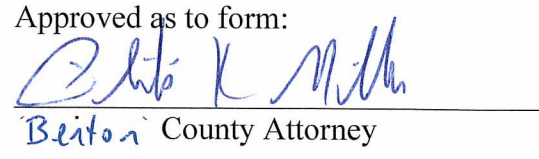 Approved as to form:
K Mill
Benton County Attorney